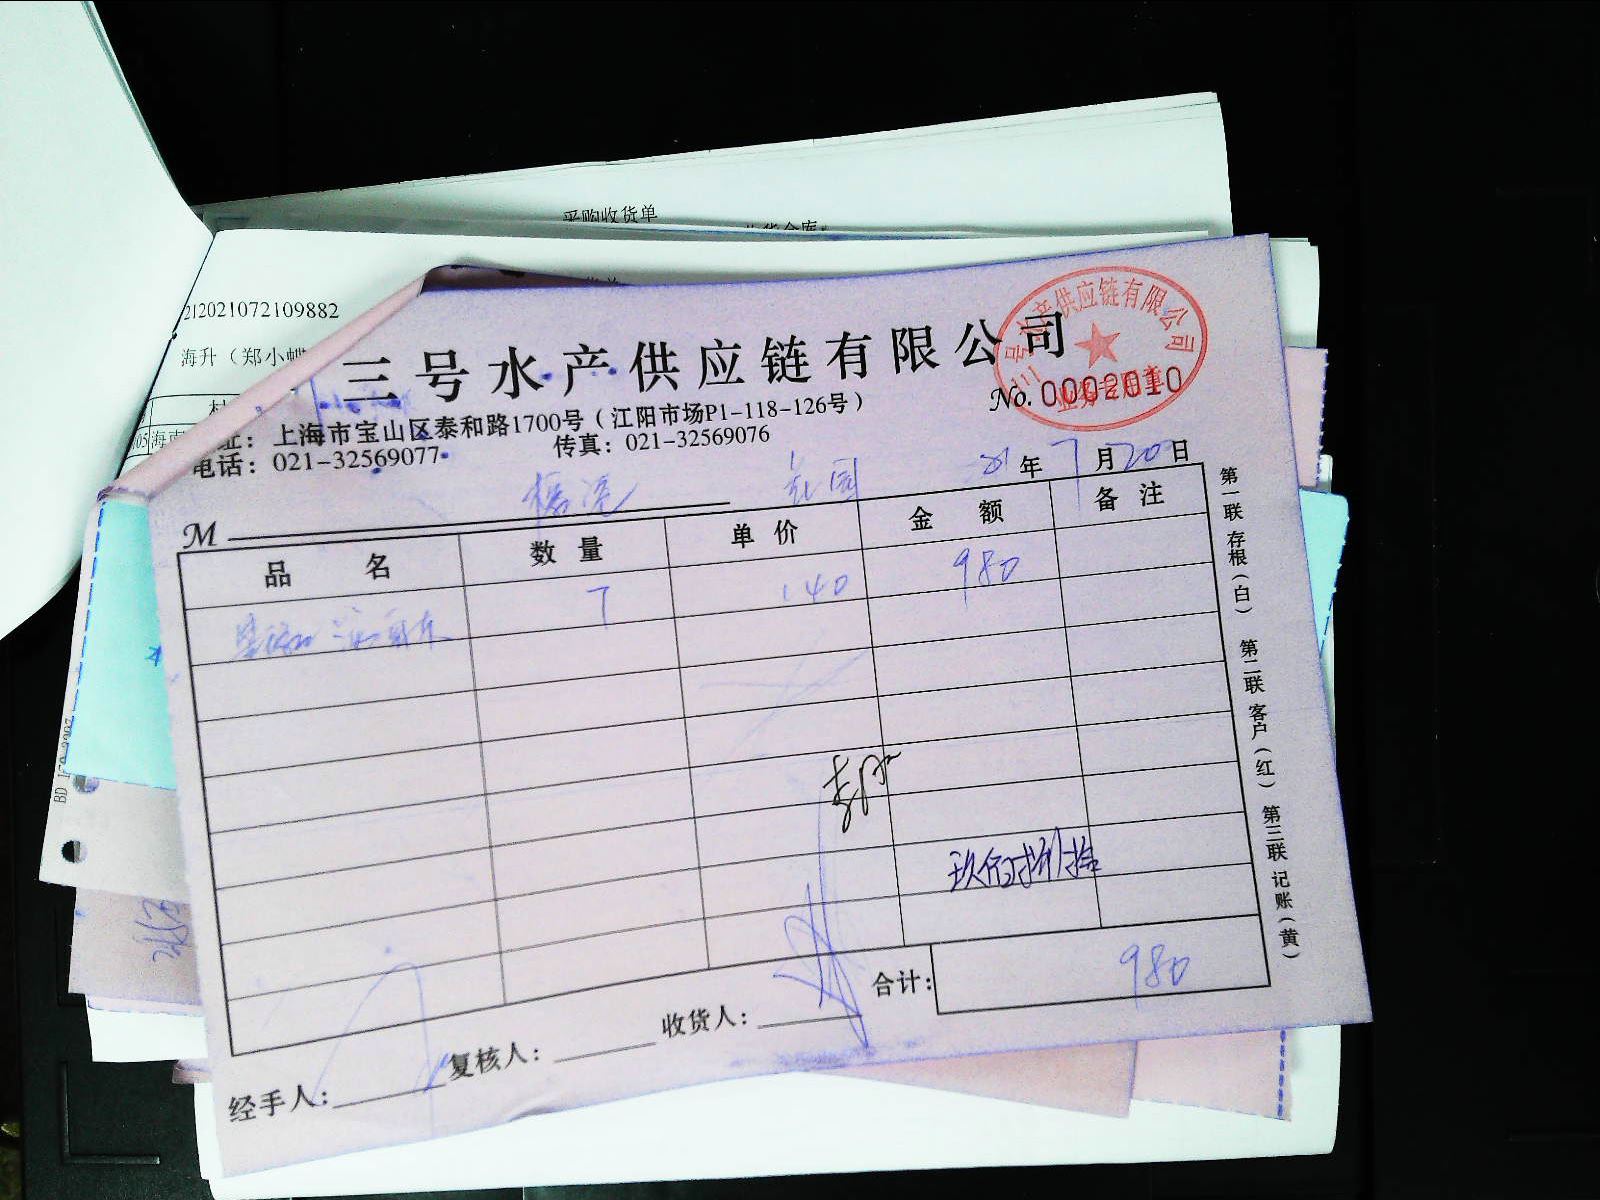 采购收货单
212021072109882
海升（郑小蝶
三号水产供应链有限公司
号水产供应链有限公司
No. 0002010
址：上海市宝山区泰和路1700号（江阳市场P1-118-126号）
电话：021-32569077 传真：021-32569076
21年7月20日
M
品名 数量 单价 金额 备注
7 140 980
玖佰捌拾
合计：980
经手人： 复核人： 收货人：
第一联 存根（白） 第二联 客户（红） 第三联 记账（黄）